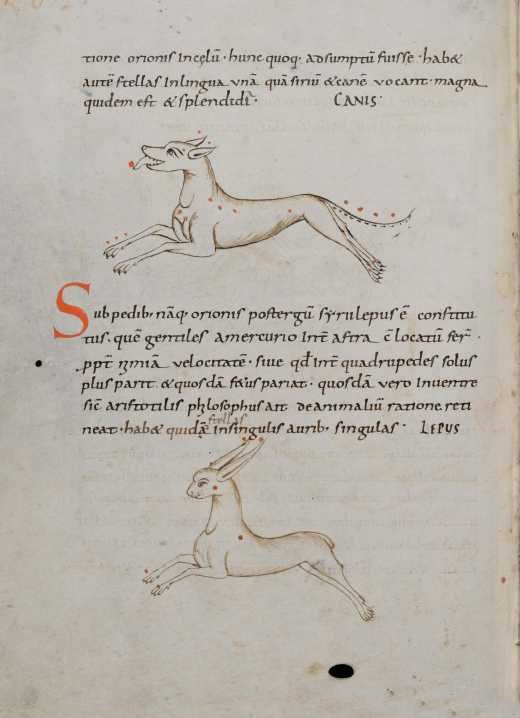 tione orionis Incęlū · hunc quoq; adsumptū fuisse · hab&
autē stellas Inlingua unā quā siriū & canē vocant · magna
quidem est & splendidi · CANIS ·
Sub pedib; nāq; orionis postergū syrulepus ē constitu
tus · quē gentiles amercurio Int̄ astra c̄locatū fer̄ ·
ppt̄ velocitatē · sive qd̄ Int̄ quadrupedes solus
plus parit · & quosdā fœtus pariat · quosdā vero Inventre
sic̄ aristotilis phylosophus ait de animaliū ratione reti
neat · hab& quidā stellas Insingulis aurib; singulas · LEPUS